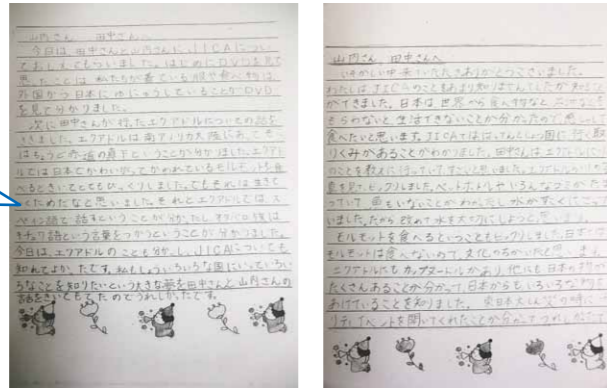 山内さん 田中さんへ
今日は、田中さんと山内さんに、JICAについ
ておしえてもらいました。はじめにDVDを見て
思ったことは、私たちが着ている服や食べ物は、
外国から日本にゆにゅうしていることがDVD
を見て分かりました。
次に田中さんが行ったエクアドルについての話を
ききました。エクアドルは南アメリカ大陸にあって、そ
真下ということが分かりました。エクアド
ルでは日本でかわいがってかわれているモルモットを食
べるときいてとてもびっくりしました。でもそれは生きて
いくためだなと思いました。それとエクアドルでは、ス
ペイン語で話すということが分かったし、キチュワ族は
キチュワ語という言葉をつかうということが分かりました。
今日は、エクアドルのことも分かったし、JICAについても
知れてよかったです。私もしょうらいいろいろな国にいっていろい
ろなことを知りたいという大きな夢を田中さんと山内さんの
話をきいてもてたのでうれしかったです。
山内さん、田中さんへ
いそがしい中来ていただきありがとうございました。
わたしは、JICAのこともあまり知りませんでしたが知ること
ができました。日本は世界から食べ物など
もらわないと生活できないことが分かったので、感しゃして
食べたいと思います。JICAでははってんとじょう国に行き取り
くみがあることがわかりました。田中さんは、エクアドルに
のことを教えに行っていてすごいと思いました。エクアドルの
見て、ビックリしました。ペットボトルやいろんなゴミがたま
っていて、魚もいないことがわかったし、水がすごくにごって
いました。だから改めて水を大切にしようと思いました。
モルモットを食べるということもビックリしました。日本では
モルモットは食べないので、文化のちがいだと思いました。
エクアドルにもカップヌードルがあり、他にも日本の物が
たくさんあることが分かって、日本からもいろいろな物を
あげていることを知りました。東日本大しんさいの時に
リティイベントを開いてくれたことが分かってうれしかったです